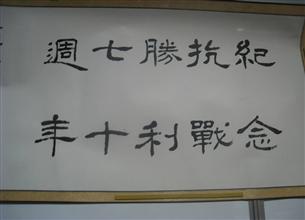 紀念
抗戰
勝利
七十
週年